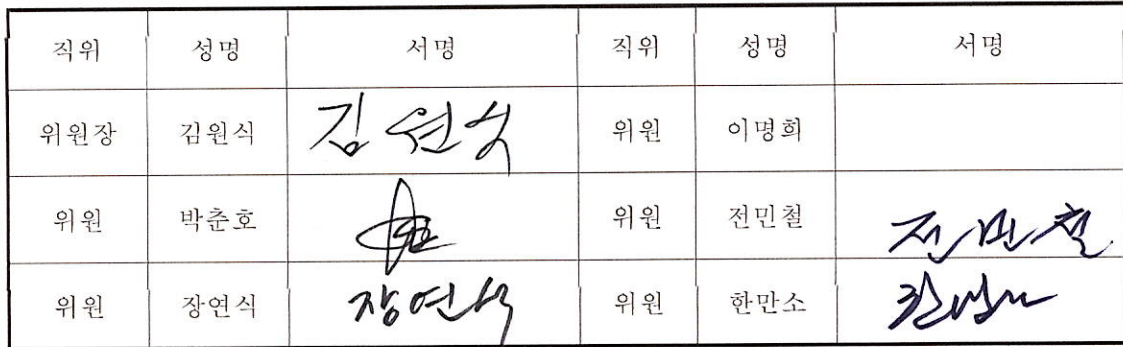 직위 성명 서명 직위 성명 서명
위원장 김원식 김원식 위원 이명희
위원 박춘호 위원 전민철 전민철
위원 장연식 장연식 위원 한만소